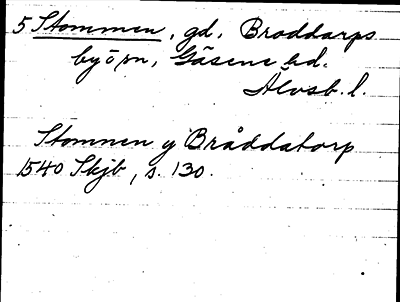 5 Stommen, gd, Broddarps
by o sn, Gäsene hd.
Älvsb. l.
Stomnen y Bråddatorp
1540 Skjb, s. 130.